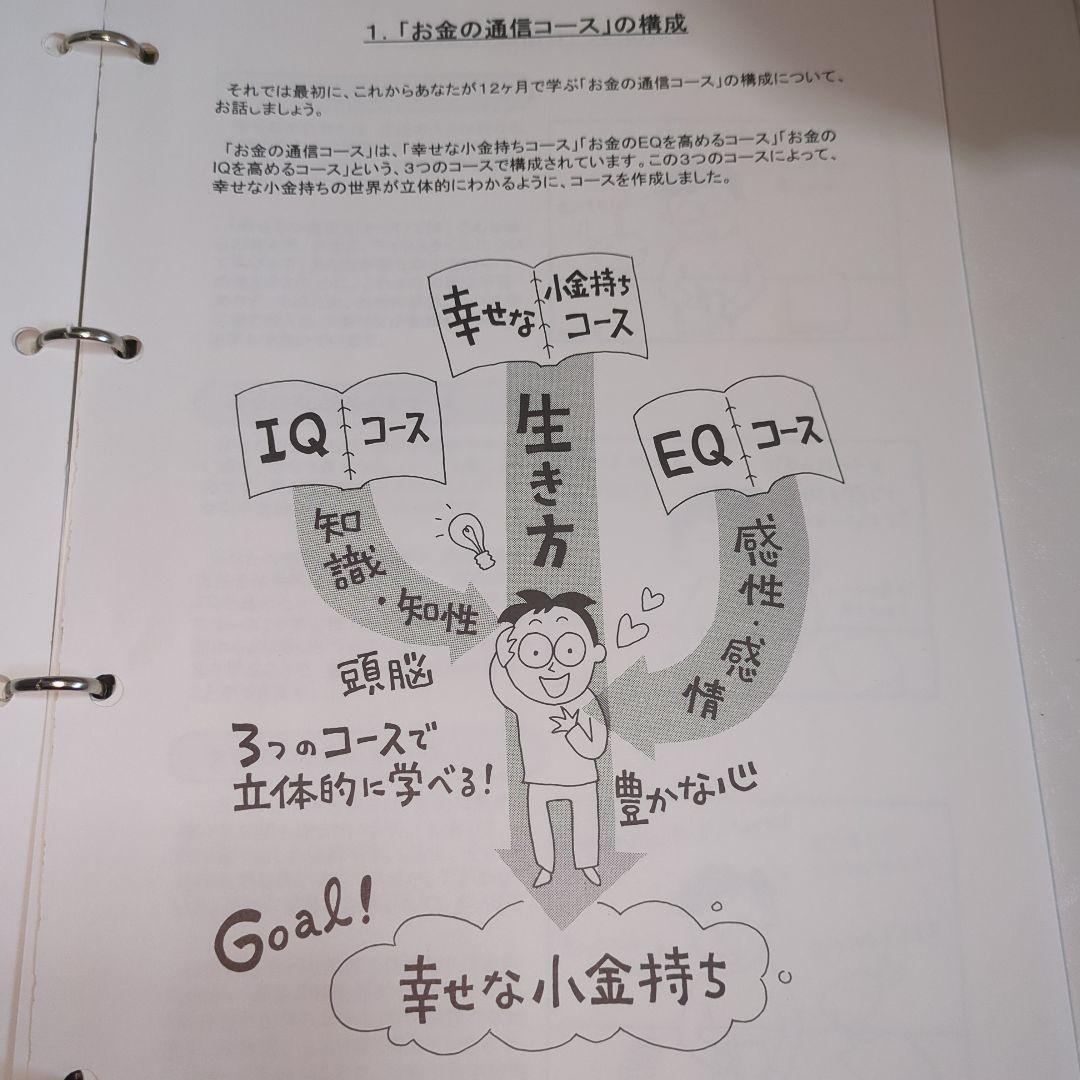 1．「お金の通信コース」の構成
それでは最初に、これからあなたが12ヶ月で学ぶ「お金の通信コース」の構成について、
お話しましょう。
「お金の通信コース」は、「幸せな小金持ちコース」「お金のEQを高めるコース」「お金の
IQを高めるコース」という、3つのコースで構成されています。この3つのコースによって、
幸せな小金持ちの世界が立体的にわかるように、コースを作成しました。
幸せな
小金持ち
コース
IQ
コース
EQ
コース
生き方
知識・知性
感性・感情
頭脳
3つのコースで
立体的に学べる!
豊かな心
Goal!
幸せな小金持ち